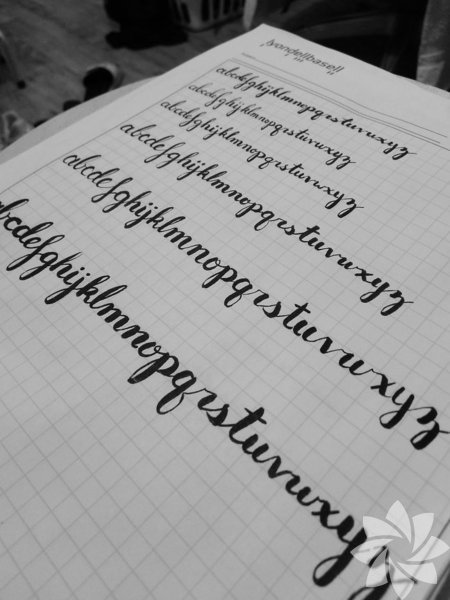 lyondellbasell
abcdefghijklmnopqrstuvwxyz
abcdefghijklmnopqrstuvwxyz
abcdefghijklmnopqrstuvwxyz
abcdefghijklmnopqrstuvwxyz
abcdefghijklmnopqrstuvwxyz
abcdefghijklmnopqrstuvwxyz